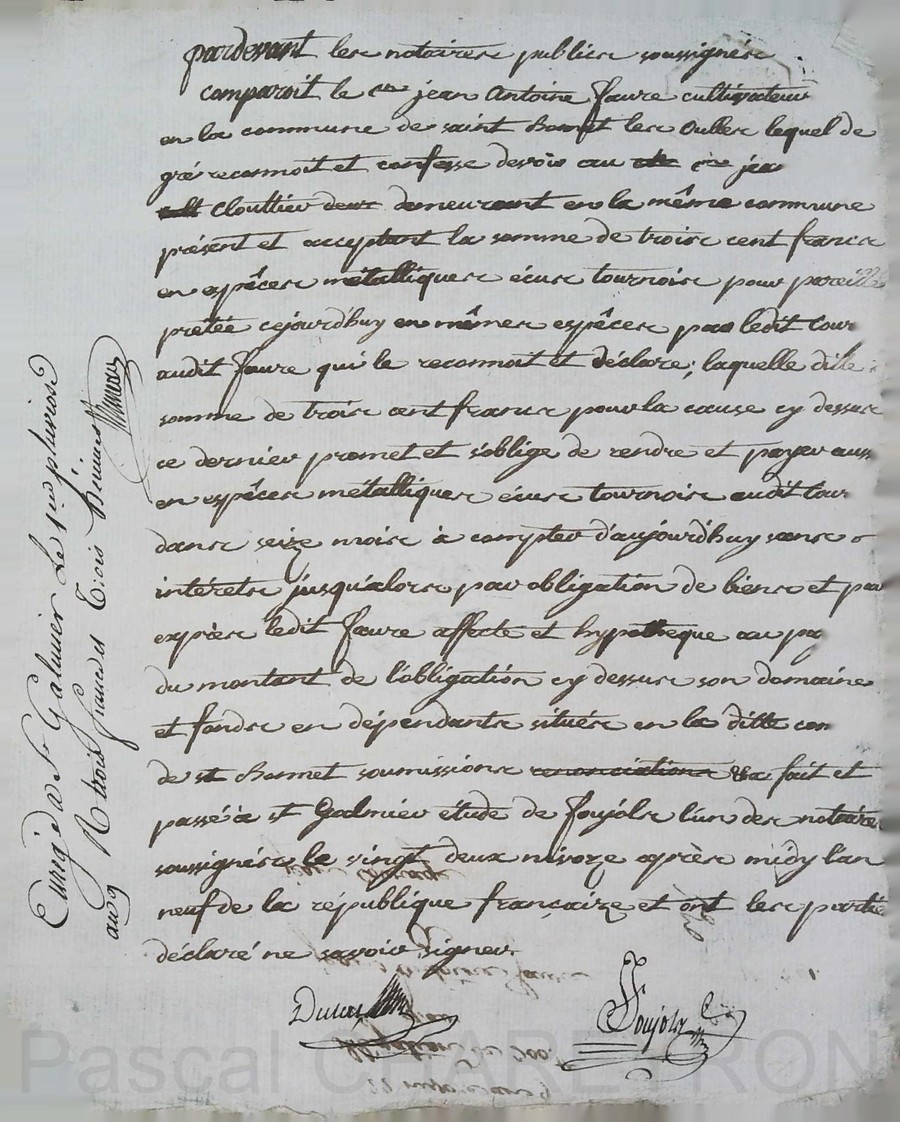 pardevant les notaires publics soussignés
comparoit le cen jean Antoine faure cultivateur
en la commune de saint Bonnet les Oulles lequel de
gré reconnoit et confesse devoir au cen jea
Clouttier demeurant en la même commune
présent et acceptant la somme de trois cent francs
en espêces métalliques écus tournois pour pareille
prêtée cejourdhuy en mêmes espêces par ledit cour
audit faure qui le reconnoit et déclare; laquelle ditte
somme de trois cent francs pour la cause cy dessus
ce dernier promet et s'oblige de rendre et payer auss
en espêces métalliques écus tournois audit cour
dans seize mois à compter d'aujourdhuy sans
intérets jusqu'alors par obligation de biens et par
exprès ledit faure affecte et hypotheque au pay
du montant de l'obligation cy dessus son domaine
et fonds en dépendants situés en la ditte com
de st Bonnet soumissions renonciations &a fait et
passé à st Galmier étude de foujols l'un des notaires
soussignés le vingt deux nivoze après midy l'an
neuf de la république française et ont les partie
déclaré ne savoir signer.
Dulac
foujols
Enrigé a St Galmier le 1er pluviose
an 9 R trois francs trois
Pascal CHAREYRON